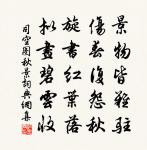 景物皆難駐
傷春復怨秋
旋書紅葉落
擬畫碧雲收
司空圖秋景詞典網集